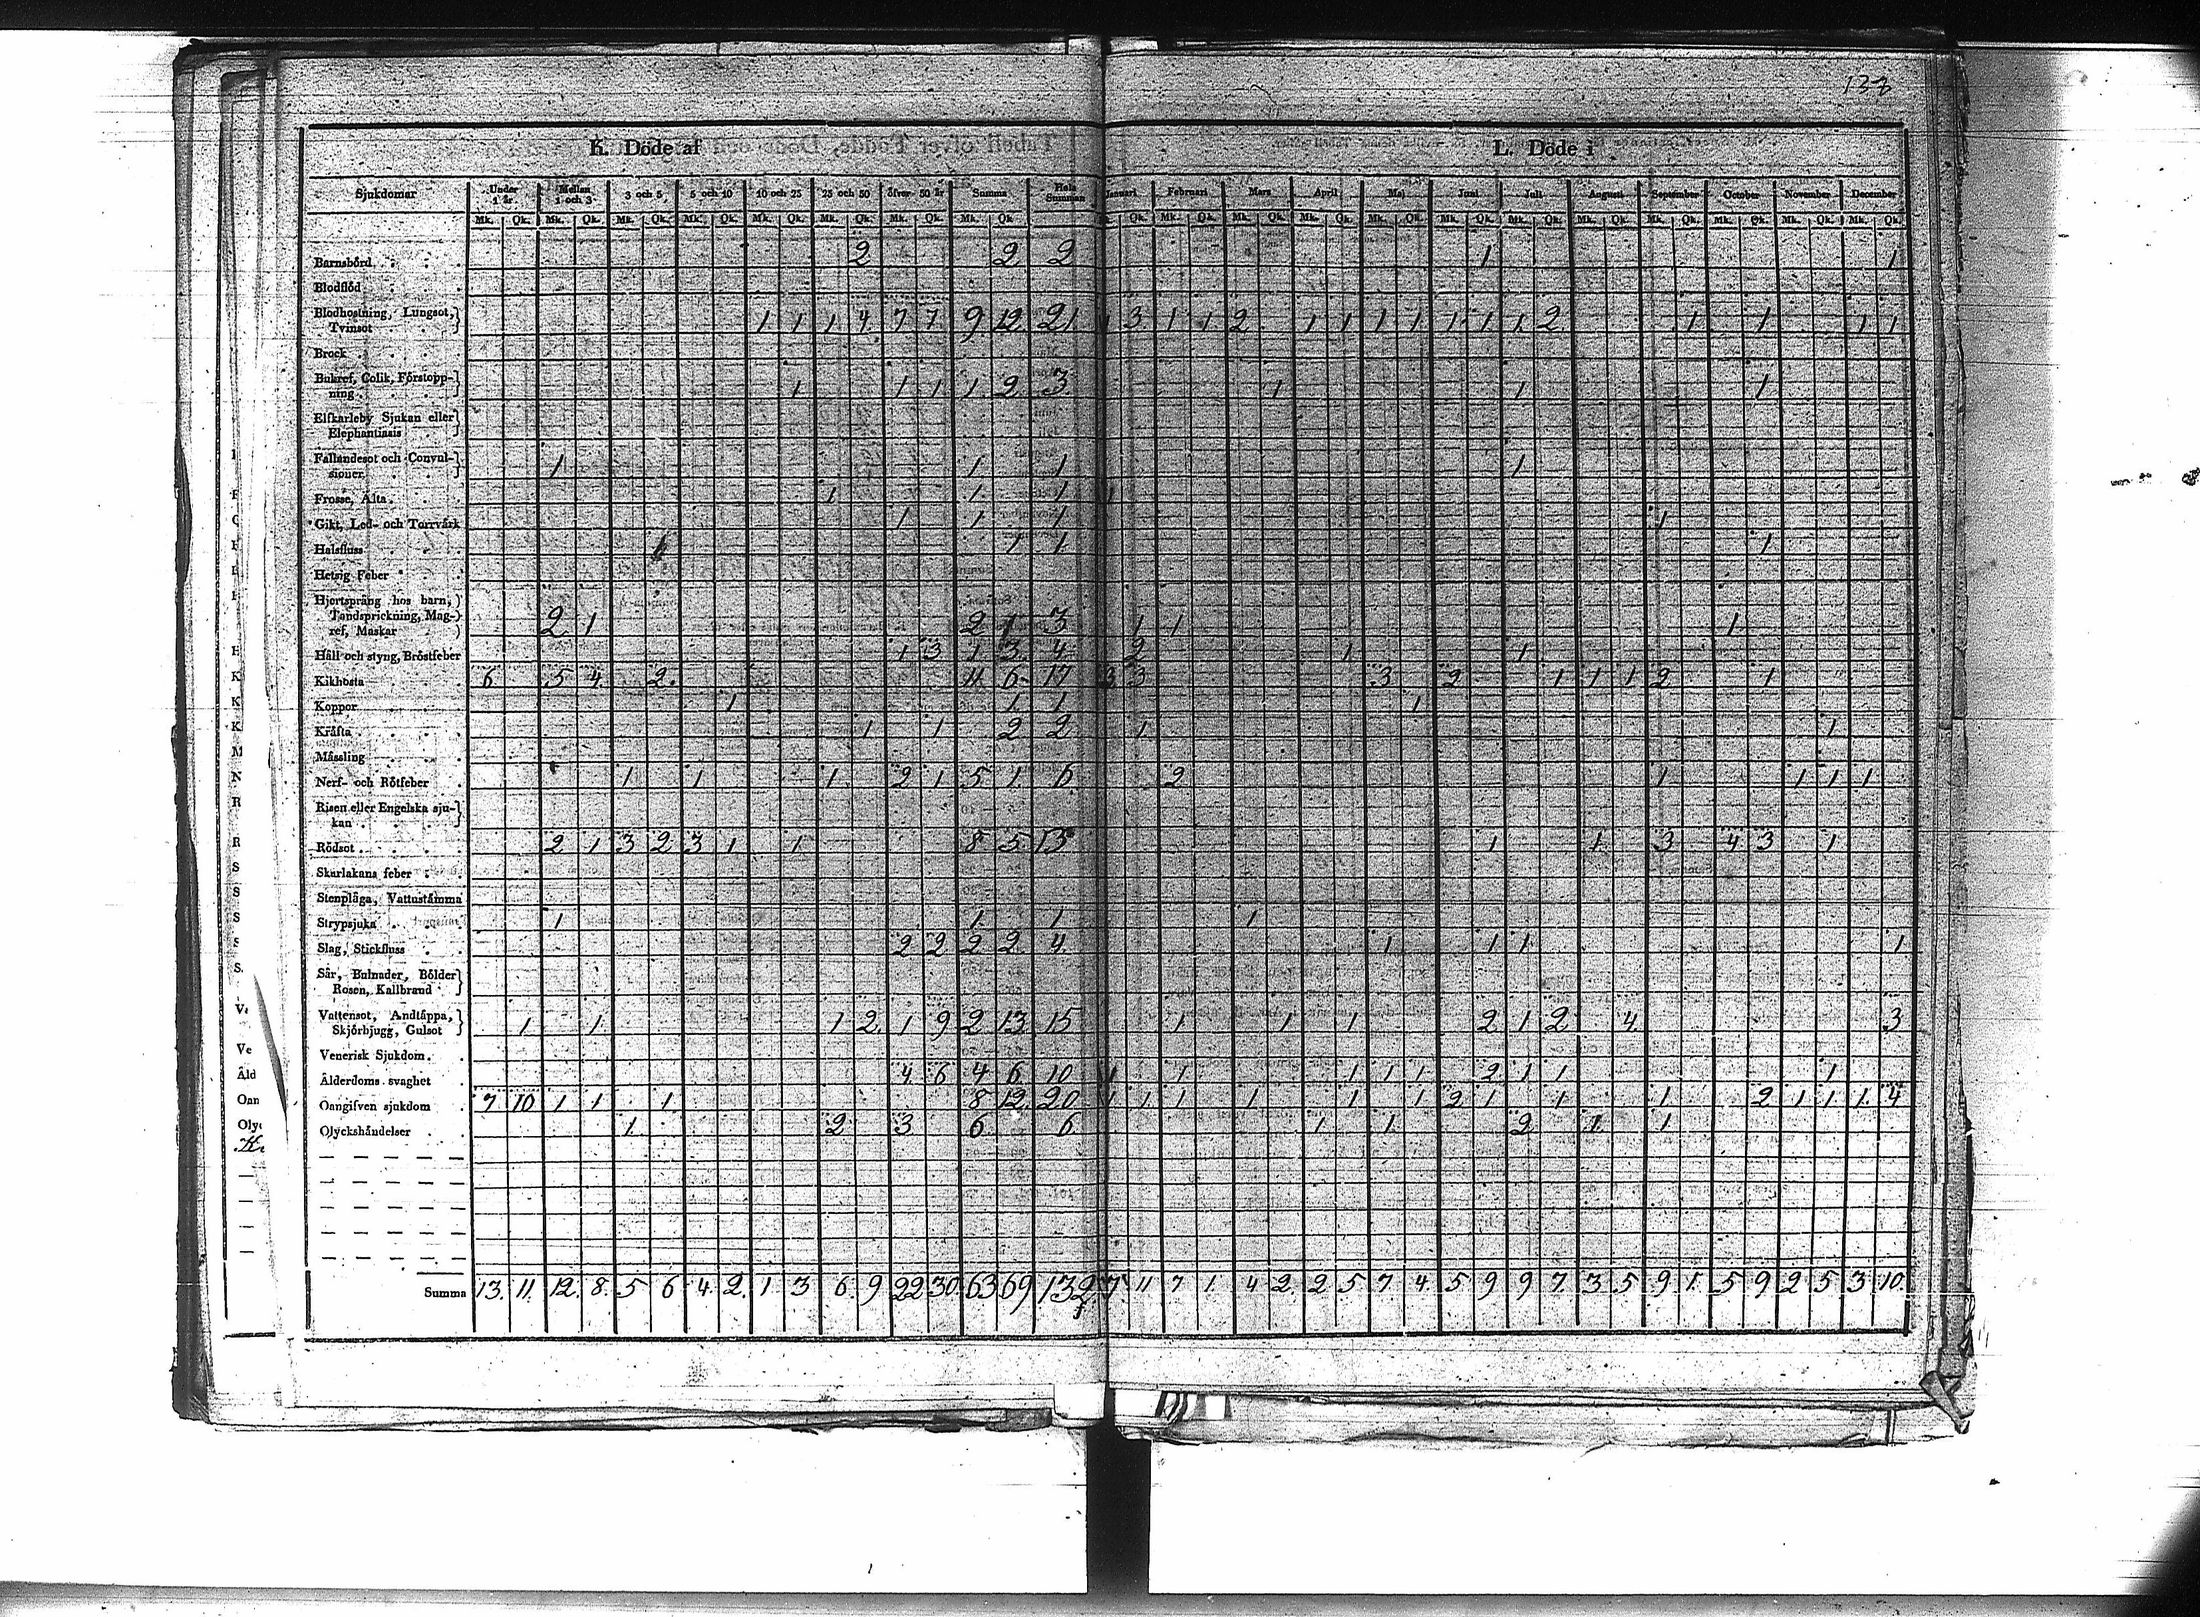 138
K. Döde af
L. Döde i
Sjukdomar Under 1 år. Mellan 1 och 3 3 och 5 5 och 10 10 och 25 25 och 50 öfver 50 år Summa Hela Summan Januari Februari Mars April Maj Juni Juli Augusti September October November December
Mk. Qk. Mk. Qk. Mk. Qk. Mk. Qk. Mk. Qk. Mk. Qk. Mk. Qk. Mk. Qk. Qk. Mk. Qk. Mk. Qk. Mk. Qk. Mk. Qk. Mk. Qk. Mk. Qk. Mk. Qk. Mk. Qk. Mk. Qk. Mk. Qk. Mk. Qk.
Barnsbörd 2 2 2 1 1
Blodflöd
Blodhostning, Lungsot,
Tvinsot 1 1 1 4 7 7 9 12 21 1 3 1 1 2 1 1 1 1 1 1 1 2 1 1 1 1
Brock
Bukref, Colik, Förstopp-
ning 1 1 1 1 2 3 1 1 1
Elfkarleby Sjukan eller
Elephantiasis
Fallandesot och Convul-
sioner 1 1 1 1
Frossa, Älta 1 1 1 1
Gikt, Led- och Torrvärk 1 1 1 1
Halsfluss 1 1 1
Hetsig Feber
Hjertspräng hos barn,
Tandsprickning, Mag-
ref, Maskar 2 1 2 1 3 1 1 1
Håll och styng, Bröstfeber 1 3 1 3 4 2 1 1
Kikhosta 6 5 4 2 11 6 17 3 3 3 2 1 1 1 2 1
Koppor 1 1 1 1
Kräfta 1 1 2 2 1 1
Mässling
Nerf- och Rötfeber 1 1 1 2 1 5 1 6 2 1 1 1 1
Risen eller Engelska sju-
kan
Rödsot 2 1 3 2 3 1 1 8 5 13 1 1 3 4 3 1
Skarlakans feber
Stenplåga, Vattustämma
Strypsjuka 1 1 1 1
Slag, Stickfluss 2 2 2 2 4 1 1 1 1
Sår, Bulnader, Bölder
Rosen, Kallbrand
Vattensot, Andtäppa,
Skjörbjugg, Gulsot 1 1 1 2 1 9 2 13 15 1 1 1 2 1 2 4 3
Venerisk Sjukdom.
Ålderdoms svaghet 4 6 4 6 10 1 1 1 1 1 2 1 1 1
Oangifven sjukdom 7 10 1 1 1 8 12 20 1 1 1 1 1 1 2 1 1 1 2 1 1 1 4
Olyckshändelser 1 2 3 6 6 1 1 2 1 1
Summa 13. 11. 12. 8. 5 6 4. 2. 1 3 6. 9 22 30 63 69 132 7 11 7 1. 4 2. 2 5 7 4 5 9 9 7. 3 5 9 1. 5 9 2 5 3 10.